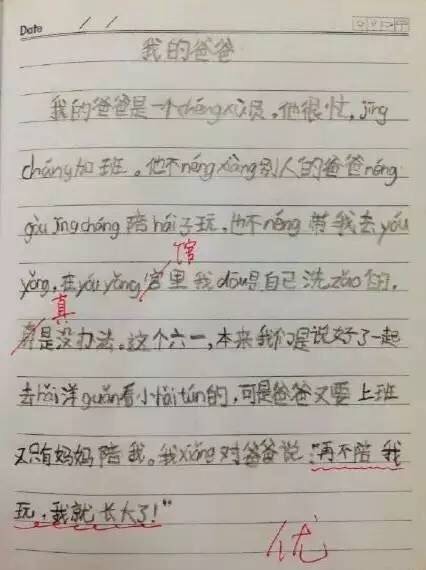 Date / /
我的爸爸
我的爸爸是一个chéng xù员,他很忙,jīng
cháng加班。他不néng xiàng别人的爸爸néng
gòu jīng cháng 陪hái子玩,也不néng 带我去yóu
馆
yǒng,在yóu yǒng宫里我dōu是自己洗zǎo的,
真
是没办法。这个六一,本来我们是说好了一起
去hǎi洋guǎn看小hǎi tún的,可是爸爸又要上班
又只有妈妈陪我。我xiǎng对爸爸说:"再不陪我
玩,我就长大了!"
优